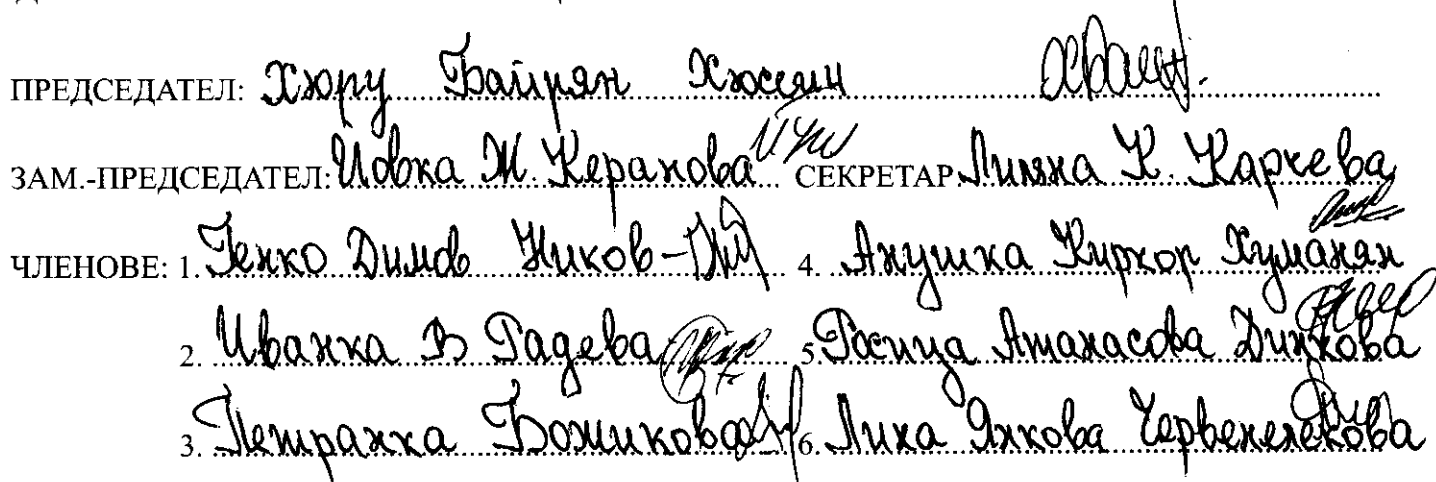 ПРЕДСЕДАТЕЛ: Хюру Байрян Хюсеин
ЗАМ.-ПРЕДСЕДАТЕЛ: Йовка Ж. Керанова СЕКРЕТАР: Лиляна К. Карчева
ЧЛЕНОВЕ: 1. Генко Димов Ников 4. Анушка Киркор Хуманян
2. Иванка В Радева 5. Росица Атанасова Динкова
3. Петранка Божикова 6. Лика Янкова Червенелекова